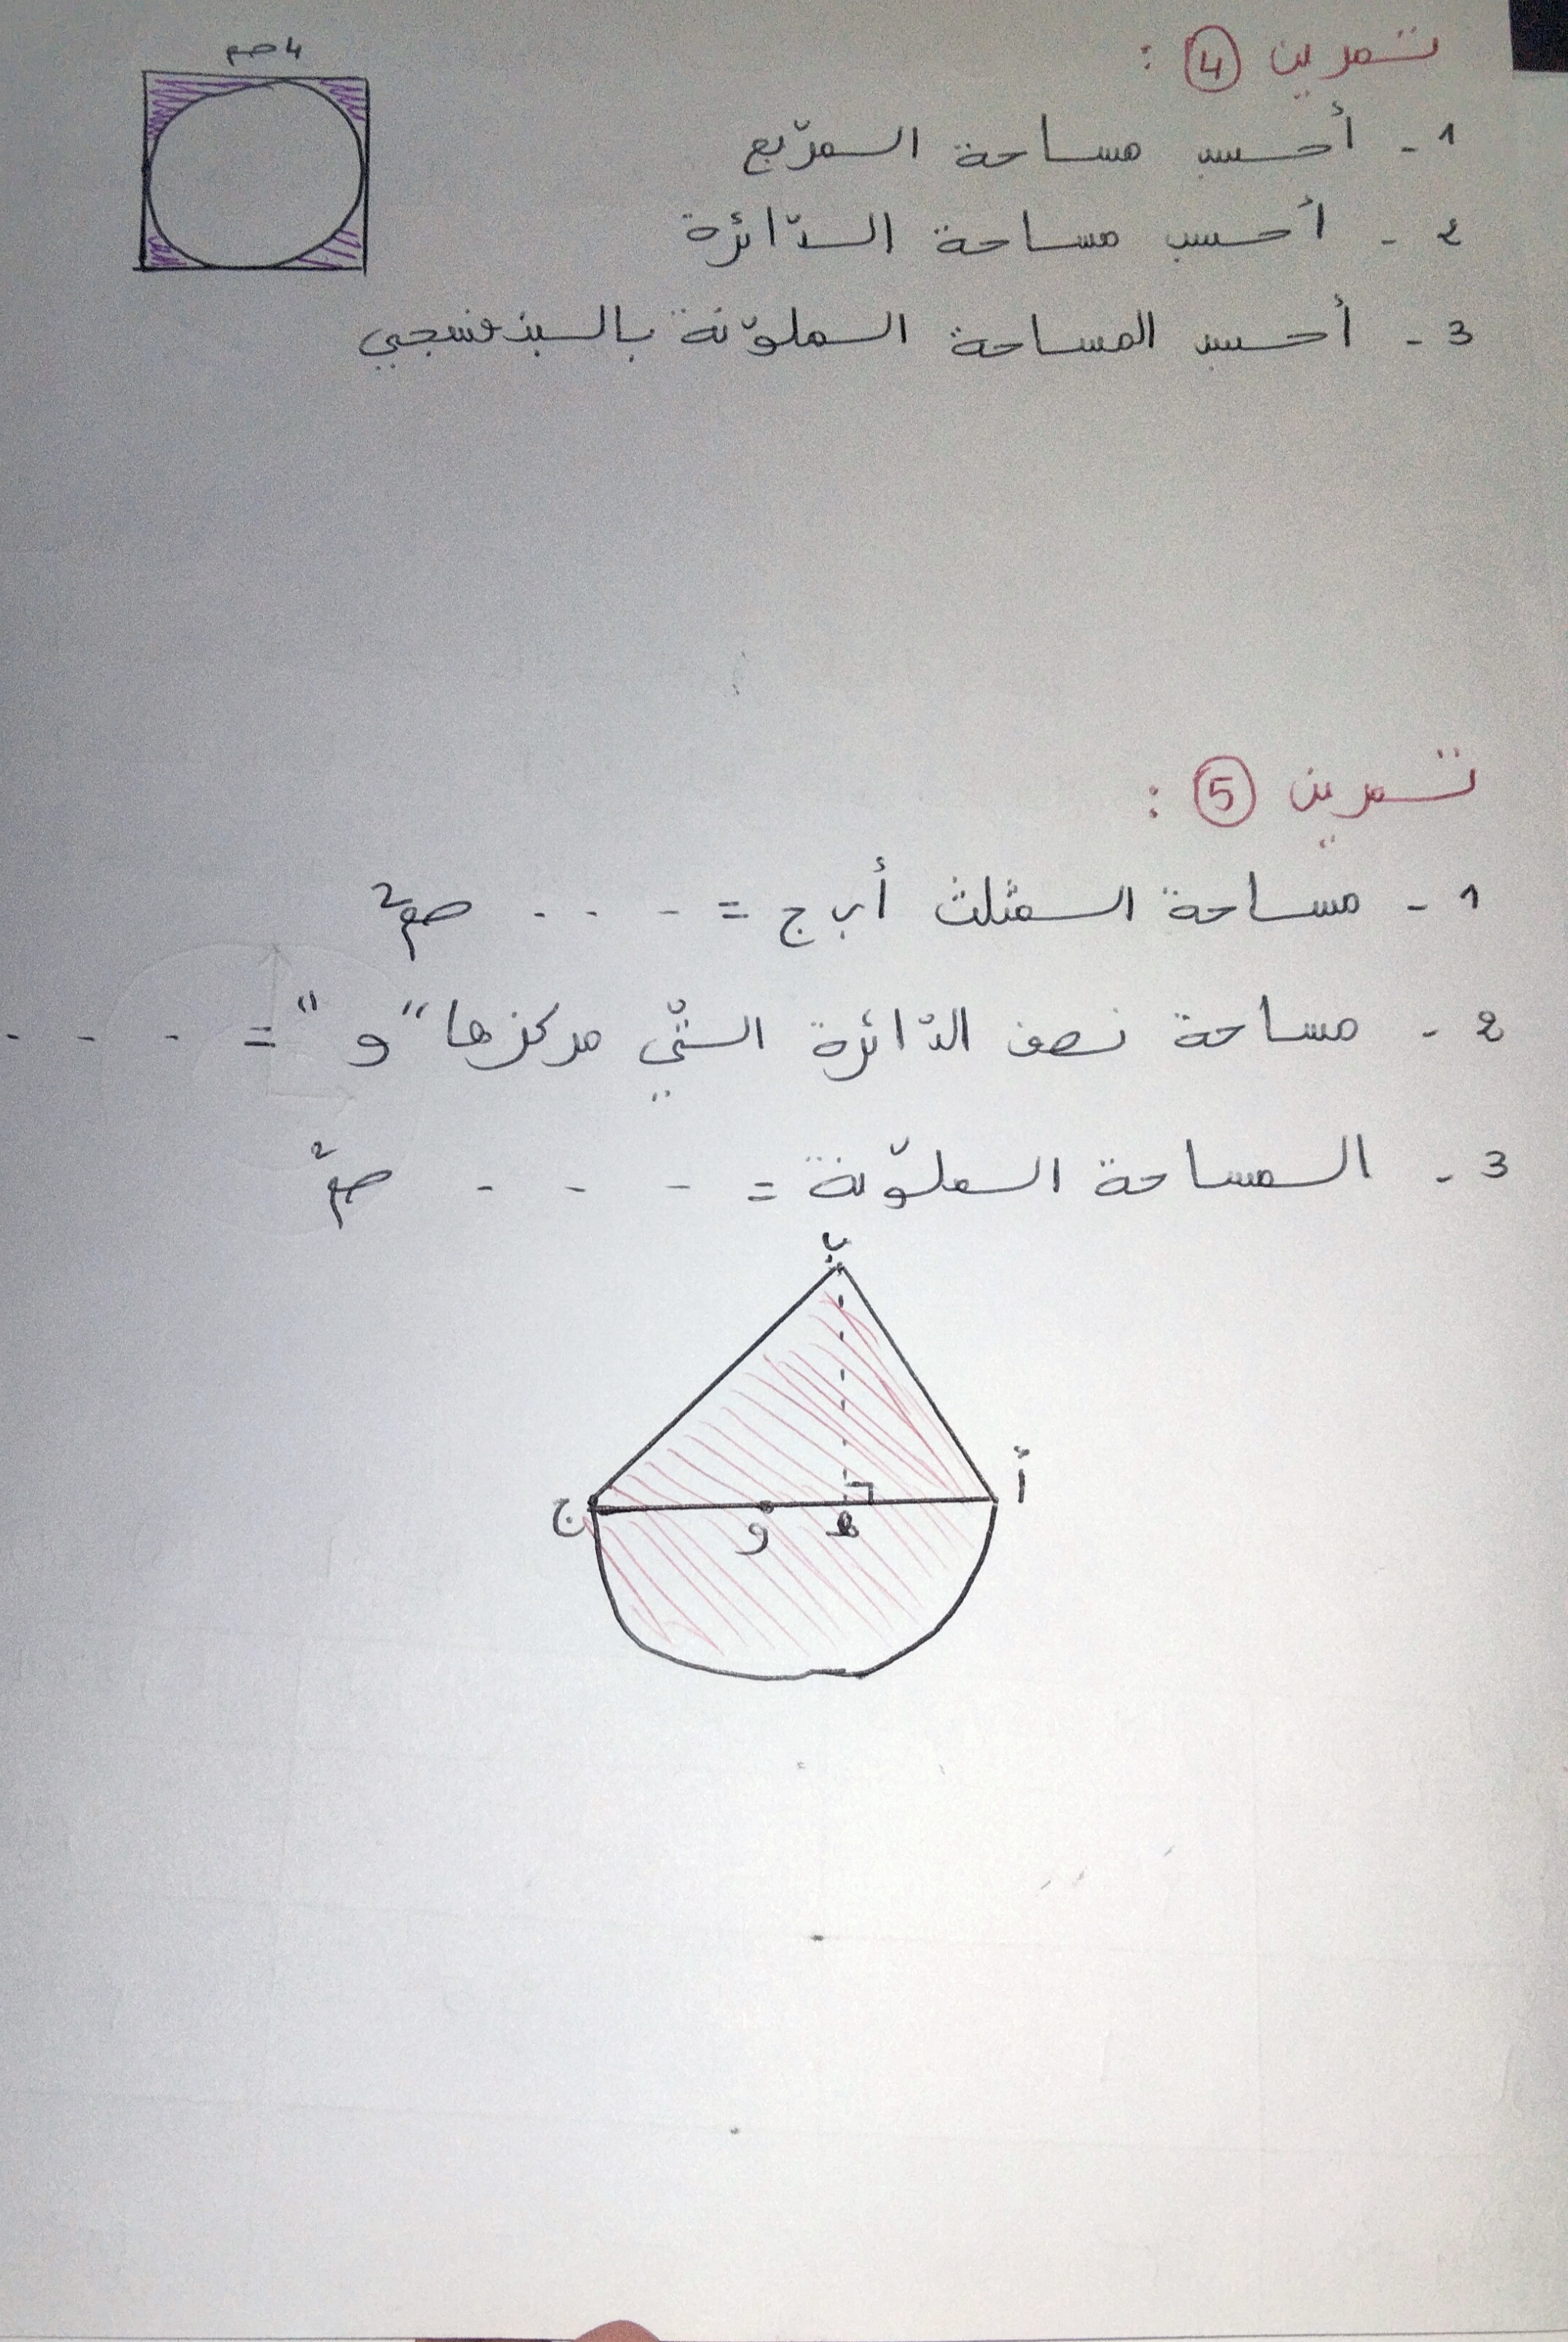 تمرين 4 :
4صم
1 - أحسب مساحة المربّع
2 - أحسب مساحة الدّائرة
3 - أحسب المساحة الملوّنة بالبنفسجي
تمرين 5 :
1 - مساحة المثلث أ ب ج = . . . . صم2
2 - مساحة نصف الدّائرة التّي مركزها "و" = . . . .
3 - المساحة الملوّنة = . . . . صم2
ب
أ
ج
و
ه